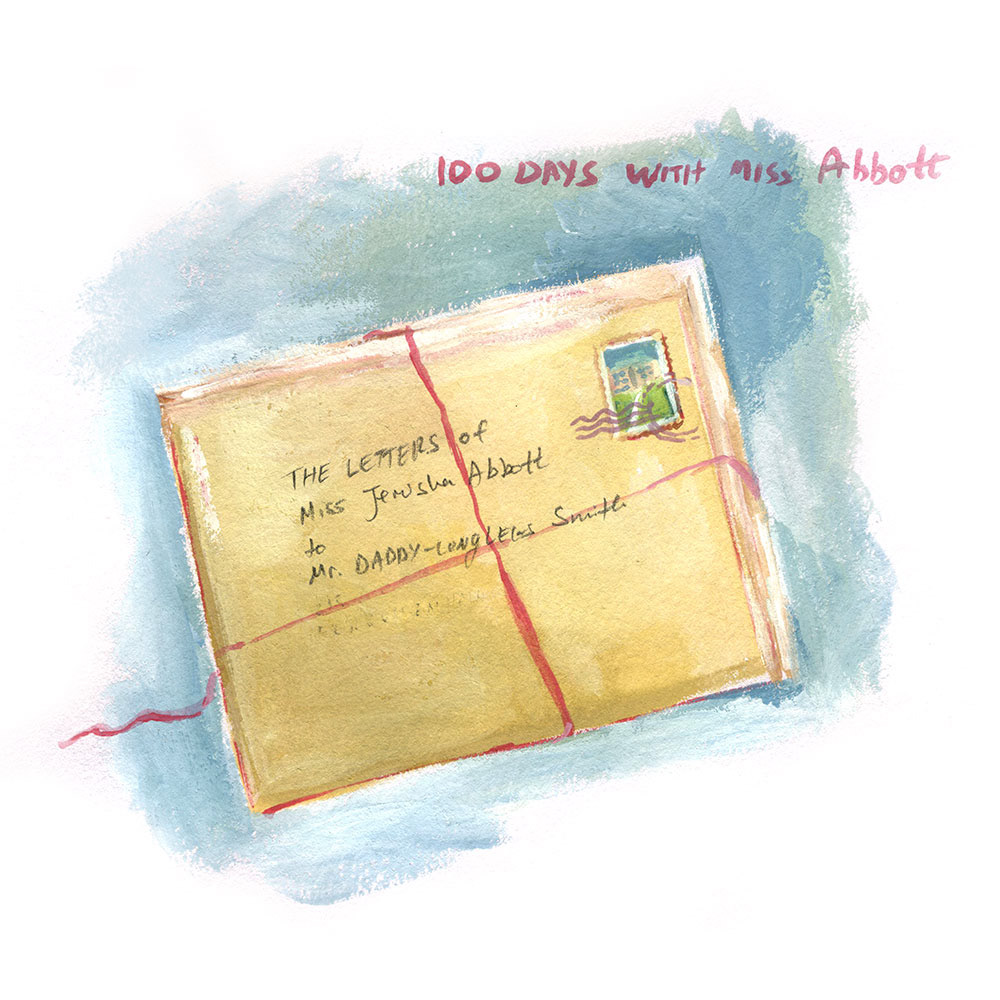 100 DAYS WITH MISS Abbott
THE LETTERS of
Miss Jerusha Abbott
to
Mr. DADDY-LONGLEGS Smith